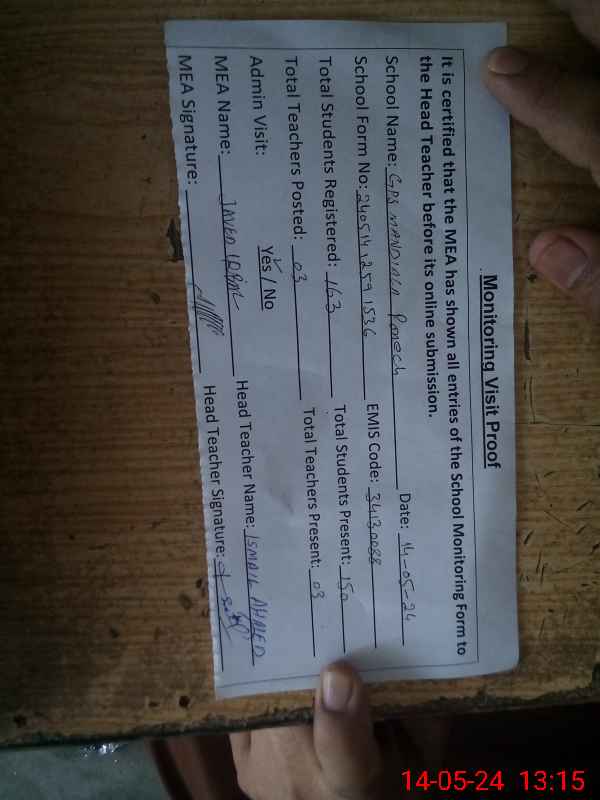 Monitoring Visit Proof
It is certified that the MEA has shown all entries of the School Monitoring Form to
the Head Teacher before its online submission.
School Name: GPS MANDIALA Date: 14-05-24
School Form No: 2405141259 1536 EMIS Code: 34130088
Total Students Registered: 163 Total Students Present: 150
Total Teachers Posted: 03 Total Teachers Present: 03
Admin Visit: Yes / No
MEA Name: JAVED Head Teacher Name: ISMAIL AHMED
MEA Signature: Head Teacher Signature:
14-05-24 13:15